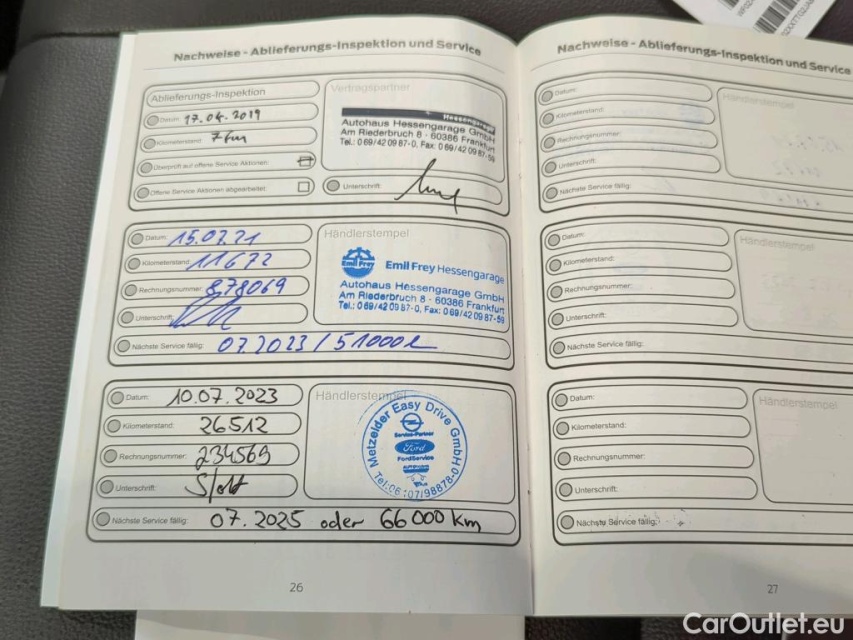 Nachweise - Ablieferungs-Inspektion und Service
Ablieferungs-Inspektion
Datum: 17.04.2019
Kilometerstand: 7 km
Überprüft auf offene Service Aktionen:
Offene Service Aktionen abgearbeitet:
Vertragspartner
Hessengarage
Autohaus Hessengarage GmbH
Am Riederbruch 8 · 60386 Frankfurt
Tel.: 0 69/42 09 87-0, Fax: 0 69/42 09 87-59
Unterschrift:
Datum: 15.07.21
Kilometerstand: 11672
Rechnungsnummer: 878069
Unterschrift:
Nächste Service fällig: 07.2023 / 51000
Händlerstempel
Emil Frey
Emil Frey Hessengarage
Autohaus Hessengarage GmbH
Am Riederbruch 8 · 60386 Frankfurt
Tel.: 0 69/42 09 87-0, Fax: 0 69/42 09 87-59
Datum: 10.07.2023
Kilometerstand: 26512
Rechnungsnummer: 234569
Unterschrift:
Nächste Service fällig: 07.2025 oder 66000 km
Händlerstempel
Metzelder Easy Drive GmbH
Service-Partner
Ford
FordService
Tel.:06107/98878-0
26
Nachweise - Ablieferungs-Inspektion und Service
Datum:
Kilometerstand:
Rechnungsnummer:
Unterschrift:
Nächste Service fällig:
Händlerstempel
Datum:
Kilometerstand:
Rechnungsnummer:
Unterschrift:
Nächste Service fällig:
Händlerstempel
Datum:
Kilometerstand:
Rechnungsnummer:
Unterschrift:
Nächste Service fällig:
Händlerstempel
27
CarOutlet.eu